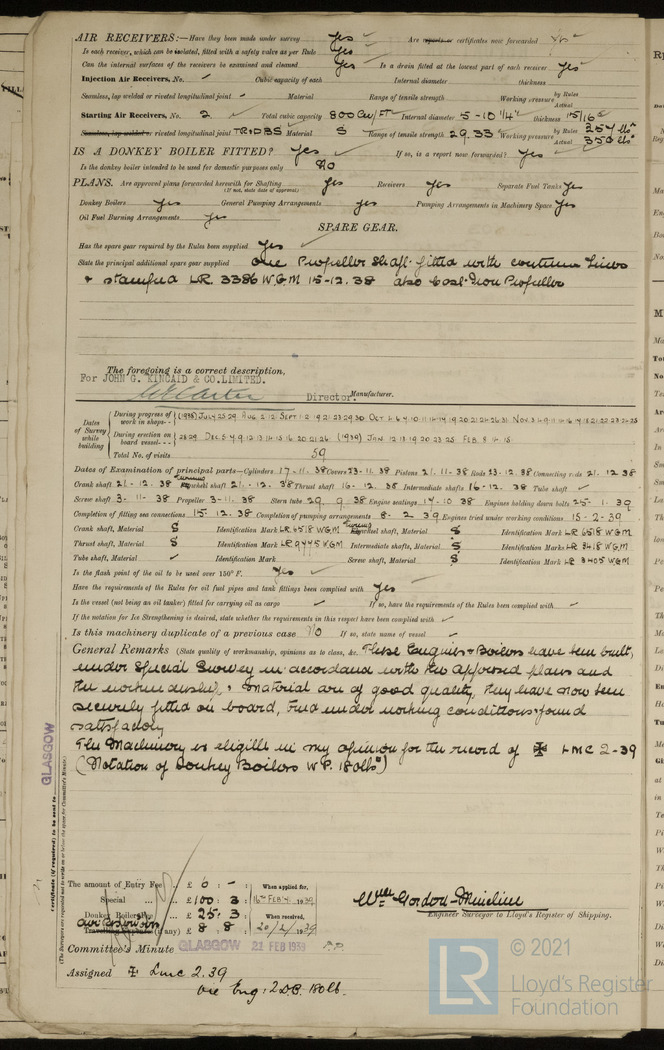 AIR RECEIVERS:—Have they been made under survey Yes Are reports or certificates now forwarded Yes
Is each receiver, which can be isolated, fitted with a safety valve as per Rule Yes
Can the internal surfaces of the receivers be examined and cleaned Yes Is a drain fitted at the lowest part of each receiver Yes
Injection Air Receivers, No. Cubic capacity of each Internal diameter thickness
Seamless, lap welded or riveted longitudinal joint Material Range of tensile strength Working pressure by Rules Actual
Starting Air Receivers, No. 2 Total cubic capacity 800 Cu/FT Internal diameter 5-10 1/4" thickness 15/16"
Seamless, lap welded or riveted longitudinal joint TR.DBS Material S Range of tensile strength 29.33 Working pressure by Rules 257 lbs Actual 350 lbs
IS A DONKEY BOILER FITTED? Yes If so, is a report now forwarded? Yes
Is the donkey boiler intended to be used for domestic purposes only No
PLANS. Are approved plans forwarded herewith for Shafting Yes Receivers Yes Separate Fuel Tanks Yes
(If not, state date of approval)
Donkey Boilers Yes General Pumping Arrangements Yes Pumping Arrangements in Machinery Space Yes
Oil Fuel Burning Arrangements Yes
SPARE GEAR.
Has the spare gear required by the Rules been supplied Yes
State the principal additional spare gear supplied One Propeller Shaft fitted with continuous Liners
& stamped LR 3386 W.G.M 15-12.38 also Cast Iron Propeller
The foregoing is a correct description,
For JOHN G. KINCAID & CO. LIMITED.
Director. Manufacturer.
Dates of Survey while building
During progress of work in shops - - (1938) JULY 25 29 AUG 2 12 SEPT 1 2 19 21 23 29 30 OCT 4 6 7 10 11 14 19 20 21 24 26 31 NOV 3 4 9 11 14 16 18 21 22 23 24 25
During erection on board vessel - - - 28 29 DEC 5 7 9 12 13 14 15 16 20 21 26 (1939) JAN 12 18 19 20 23 25 FEB 8 14 15
Total No. of visits 59
Dates of Examination of principal parts—Cylinders 17-11.38 Covers 23-11.38 Pistons 21.11-38 Rods 23-12.38 Connecting rods 21.12 38
Crank shaft 21-12.38 shaft 21-12.38 Thrust shaft 16-12.38 Intermediate shafts 16-12.38 Tube shaft
Screw shaft 3-11-38 Propeller 3-11.38 Stern tube 29 9 38 Engine seatings 14-10 38 Engines holding down bolts 25-1.39
Completion of fitting sea connections 15.12.38 Completion of pumping arrangements 8-2 39 Engines tried under working conditions 15-2-39
Crank shaft, Material S Identification Mark LR 6518 W.G.M shaft, Material S Identification Mark LR 6518 W.G.M
Thrust shaft, Material S Identification Mark LR 9445 W.G.M Intermediate shafts, Material S Identification Marks LR 3418 W.G.M
Tube shaft, Material Identification Mark Screw shaft, Material S Identification Mark LR 3405 W.G.M
Is the flash point of the oil to be used over 150° F. Yes
Have the requirements of the Rules for oil fuel pipes and tank fittings been complied with Yes
Is the vessel (not being an oil tanker) fitted for carrying oil as cargo If so, have the requirements of the Rules been complied with
If the notation for Ice Strengthening is desired, state whether the requirements in this respect have been complied with
Is this machinery duplicate of a previous case No If so, state name of vessel
General Remarks (State quality of workmanship, opinions as to class, &c. These Engines & Boilers have been built,
under Special Survey in accordance with the approved plans and
the workmanship & material are of good quality, they have now been
securely fitted on board, tried under working conditions & found
satisfactory
The Machinery is eligible in my opinion for the record of ✠ LMC 2-39
(Notation of Donkey Boilers W.P. 180lbs)
GLASGOW
Certificate (if required) to be sent to
(The Surveyors are requested not to write on or below the space for Committee's Minute.)
The amount of Entry Fee .. £ 6 : - : When applied for,
Special ... £ 100 : 3 : 16th FEB 1939
Donkey Boiler Fee £ 25 : 3 When received,
Travelling Expenses (if any) £ 8 : 8 : 20/2/1939
Engineer Surveyor to Lloyd's Register of Shipping.
Committee's Minute GLASGOW 21 FEB 1939
Assigned ✠ Lmc 2.39
Oil Eng: 2 D.B. 180lb.
LR
© 2021
Lloyd's Register
Foundation